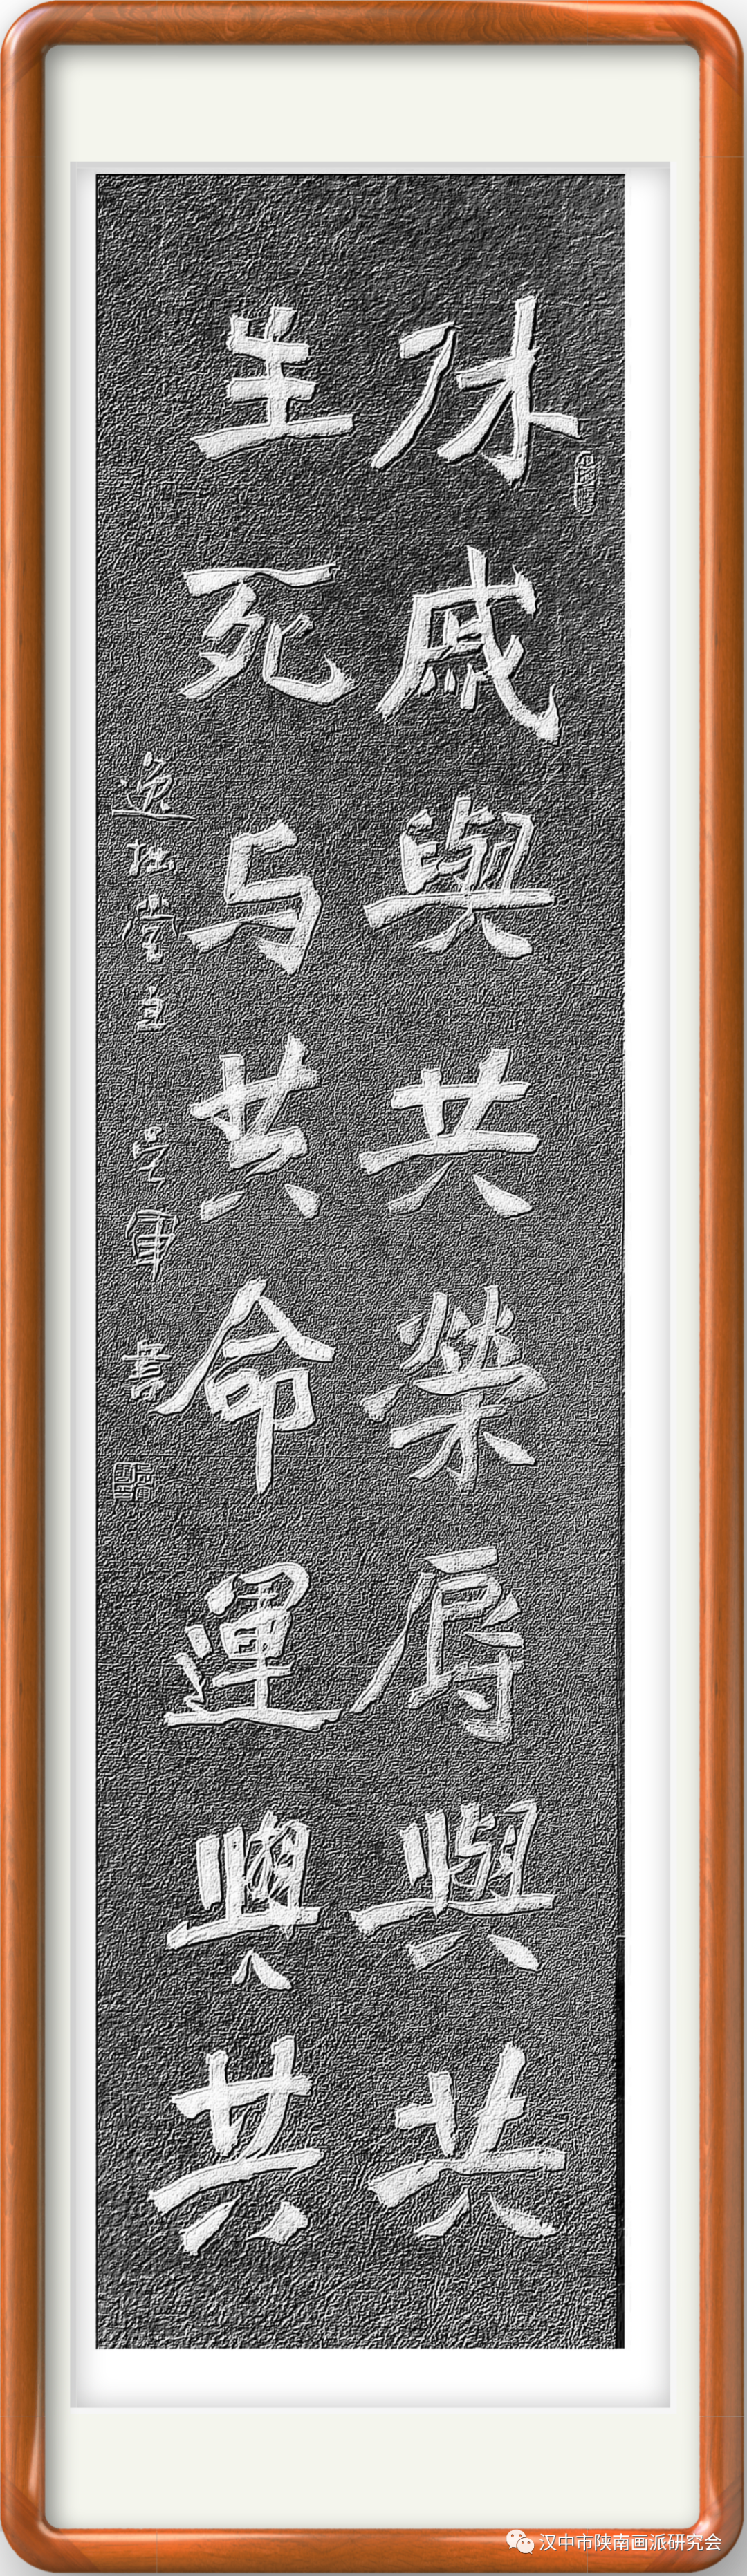 休戚與共榮辱與共
生死与共命運與共
逸拙堂主 軍 書
汉中市陕南画派研究会